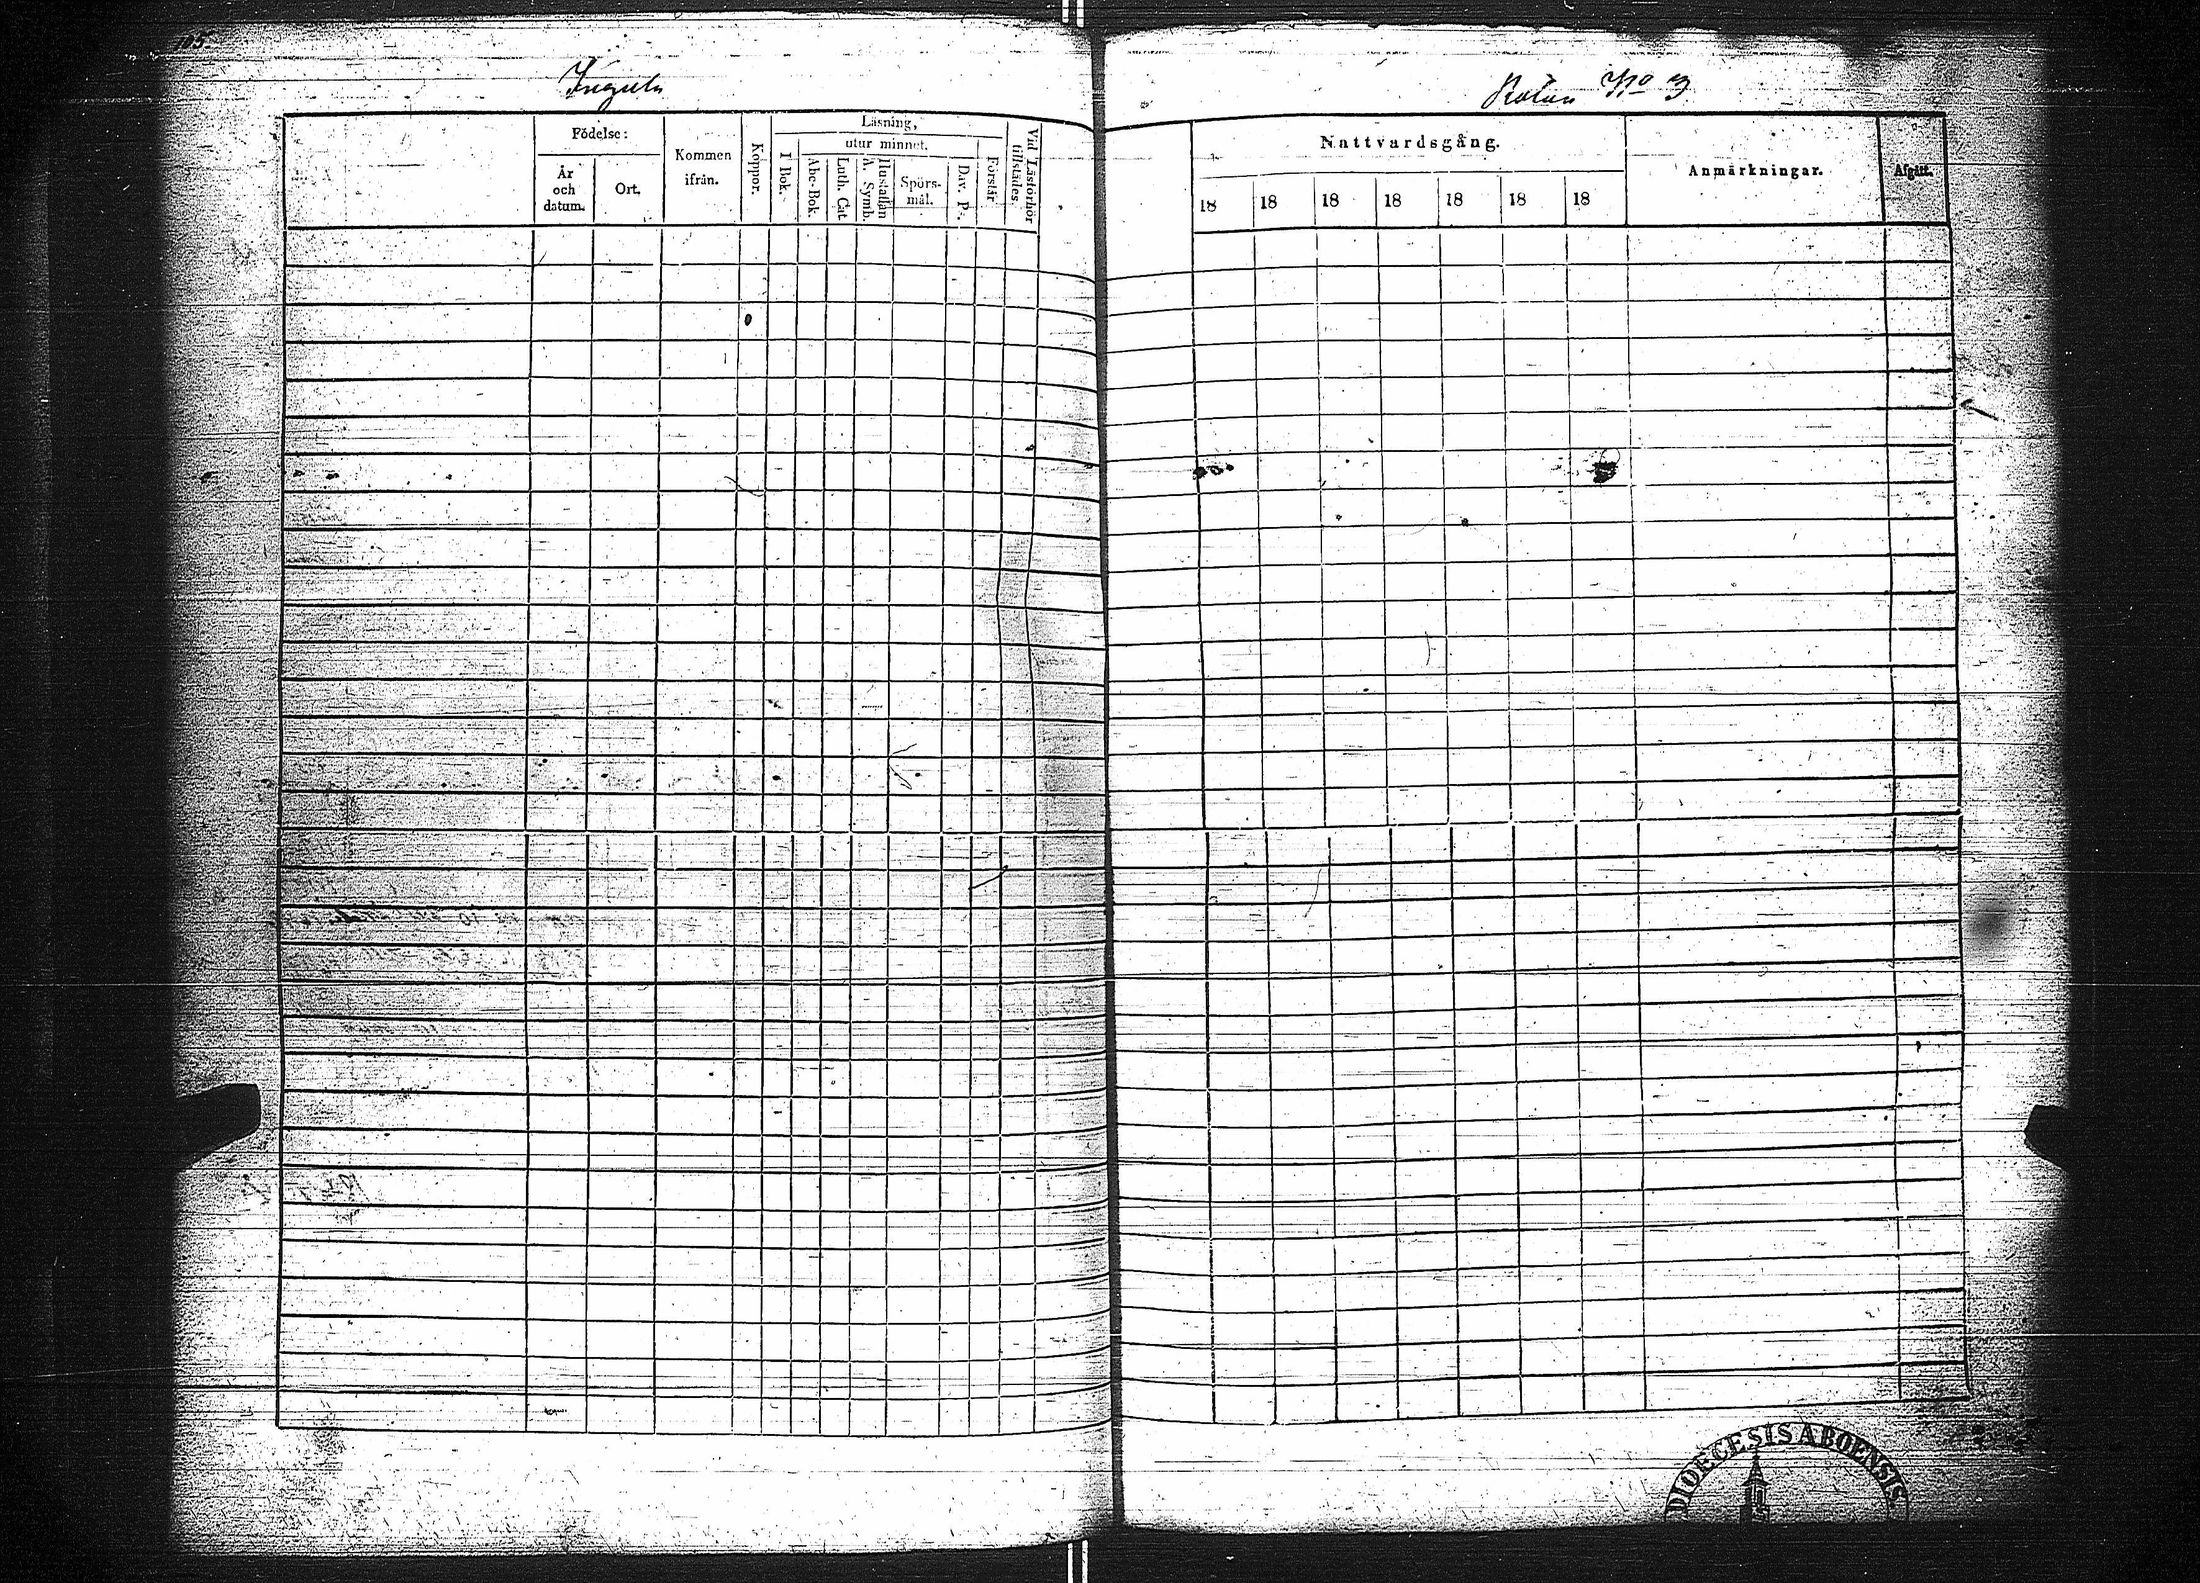 Rotan No 3
Födelse:
År och datum.
Ort.
Kommen ifrån.
Koppor.
Läsning,
I Bok.
utur minnet.
Abc-Bok
Luth. Cat
Hustaflan A. Symb.
Spörsmål.
Dav. P.
Förstår
Vid Läsförhör tillstädes
Nattvardsgång.
18 18 18 18 18 18 18
Anmärkningar.
Afgått.
DIOECESIS ABOENSIS